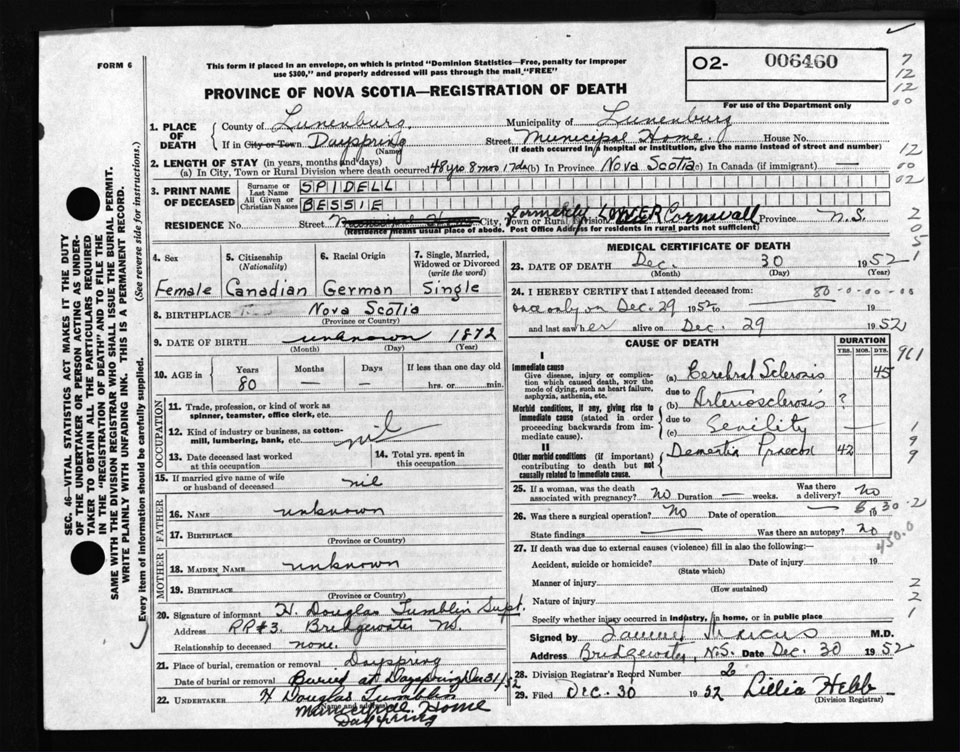 FORM 6
This form if placed in an envelope, on which is printed "Dominion Statistics—Free, penalty for improper
use $300," and properly addressed will pass through the mail "FREE"
O2- 006460
For use of the Department only
PROVINCE OF NOVA SCOTIA—REGISTRATION OF DEATH
1. PLACE OF DEATH
County of Lunenburg. Municipality of Lunenburg
If in City or Town Dayspring (Name) Street Municipal Home. House No.
(If death occurred in a hospital or institution, give the name instead of street and number)
2. LENGTH OF STAY (in years, months and days)
(a) In City, Town or Rural Division where death occurred 48 yrs 8 mos 17 ds (b) In Province Nova Scotia (c) In Canada (if immigrant) —
3. PRINT NAME OF DECEASED
Surname or Last Name SPIDELL
All Given or Christian Names BESSIE
RESIDENCE No. Street Municipal Home City, Town or Rural Division formerly LOWER Cornwall Province N.S.
(Residence means usual place of abode. Post Office Address for residents in rural parts not sufficient)
4. Sex 5. Citizenship (Nationality) 6. Racial Origin 7. Single, Married, Widowed or Divorced (write the word)
Female Canadian German Single
8. BIRTHPLACE Nova Scotia
(Province or Country)
9. DATE OF BIRTH unknown 1872
(Month) (Day) (Year)
10. AGE in Years Months Days If less than one day old
80 — — hrs. or min.
OCCUPATION
11. Trade, profession, or kind of work as spinner, teamster, office clerk, etc.
12. Kind of industry or business, as cotton-mill, lumbering, bank, etc. nil
13. Date deceased last worked at this occupation
14. Total yrs. spent in this occupation
15. If married give name of wife or husband of deceased nil
FATHER
16. NAME unknown
17. BIRTHPLACE
(Province or Country)
MOTHER
18. MAIDEN NAME unknown
19. BIRTHPLACE
(Province or Country)
20. Signature of informant H. Douglas Tumblin Supt.
Address RR#3. Bridgewater
Relationship to deceased none.
21. Place of burial, cremation or removal Dayspring
Date of burial or removal Buried at Dayspring Dec 31/52
22. UNDERTAKER H Douglas Tumblin
(Name and address)
Municipal Home
Dayspring
MEDICAL CERTIFICATE OF DEATH
23. DATE OF DEATH Dec. 30 1952
(Month) (Day) (Year)
24. I HEREBY CERTIFY that I attended deceased from:
once only on Dec. 29 1952 to 19
and last saw her alive on Dec. 29 1952
CAUSE OF DEATH
DURATION
YRS. MOS. DYS.
I
Immediate cause
Give disease, injury or complication which caused death, NOT the mode of dying, such as heart failure, asphyxia, asthenia, etc.
(a) Cerebral Sclerosis 45
due to
Morbid conditions, if any, giving rise to immediate cause (stated in order proceeding backwards from immediate cause).
(b) Arteriosclerosis ?
due to
(c) Senility —
II
Other morbid conditions (if important) contributing to death but not causally related to immediate cause.
Dementia Praecox 42
25. If a woman, was the death associated with pregnancy? No Duration — weeks. Was there a delivery? no
26. Was there a surgical operation? No Date of operation — 19
State findings Was there an autopsy? no
27. If death was due to external causes (violence) fill in also the following:—
Accident, suicide or homicide? Date of injury 19
(State which)
Manner of injury
(How sustained)
Nature of injury
Specify whether injury occurred in industry, in home, or in public place
Signed by Samuel Marcus M.D.
Address Bridgewater, N.S. Date Dec. 30 1952
28. Division Registrar's Record Number 2
29. Filed Dec. 30 1952 Lillia Hebb
(Division Registrar)
SEC. 46—VITAL STATISTICS ACT MAKES IT THE DUTY
OF THE UNDERTAKER OR PERSON ACTING AS UNDER-
TAKER TO OBTAIN ALL THE PARTICULARS REQUIRED
IN THE "REGISTRATION OF DEATH" AND TO FILE THE
SAME WITH THE DIVISION REGISTRAR WHO SHALL ISSUE THE BURIAL PERMIT.
WRITE PLAINLY WITH UNFADING INK. THIS IS A PERMANENT RECORD.
Every item of information should be carefully supplied. (See reverse side for instructions.)
7
12
12
00
12
00
02
2
0
5
1
961
1
9
9
2
450.0
2
2
1